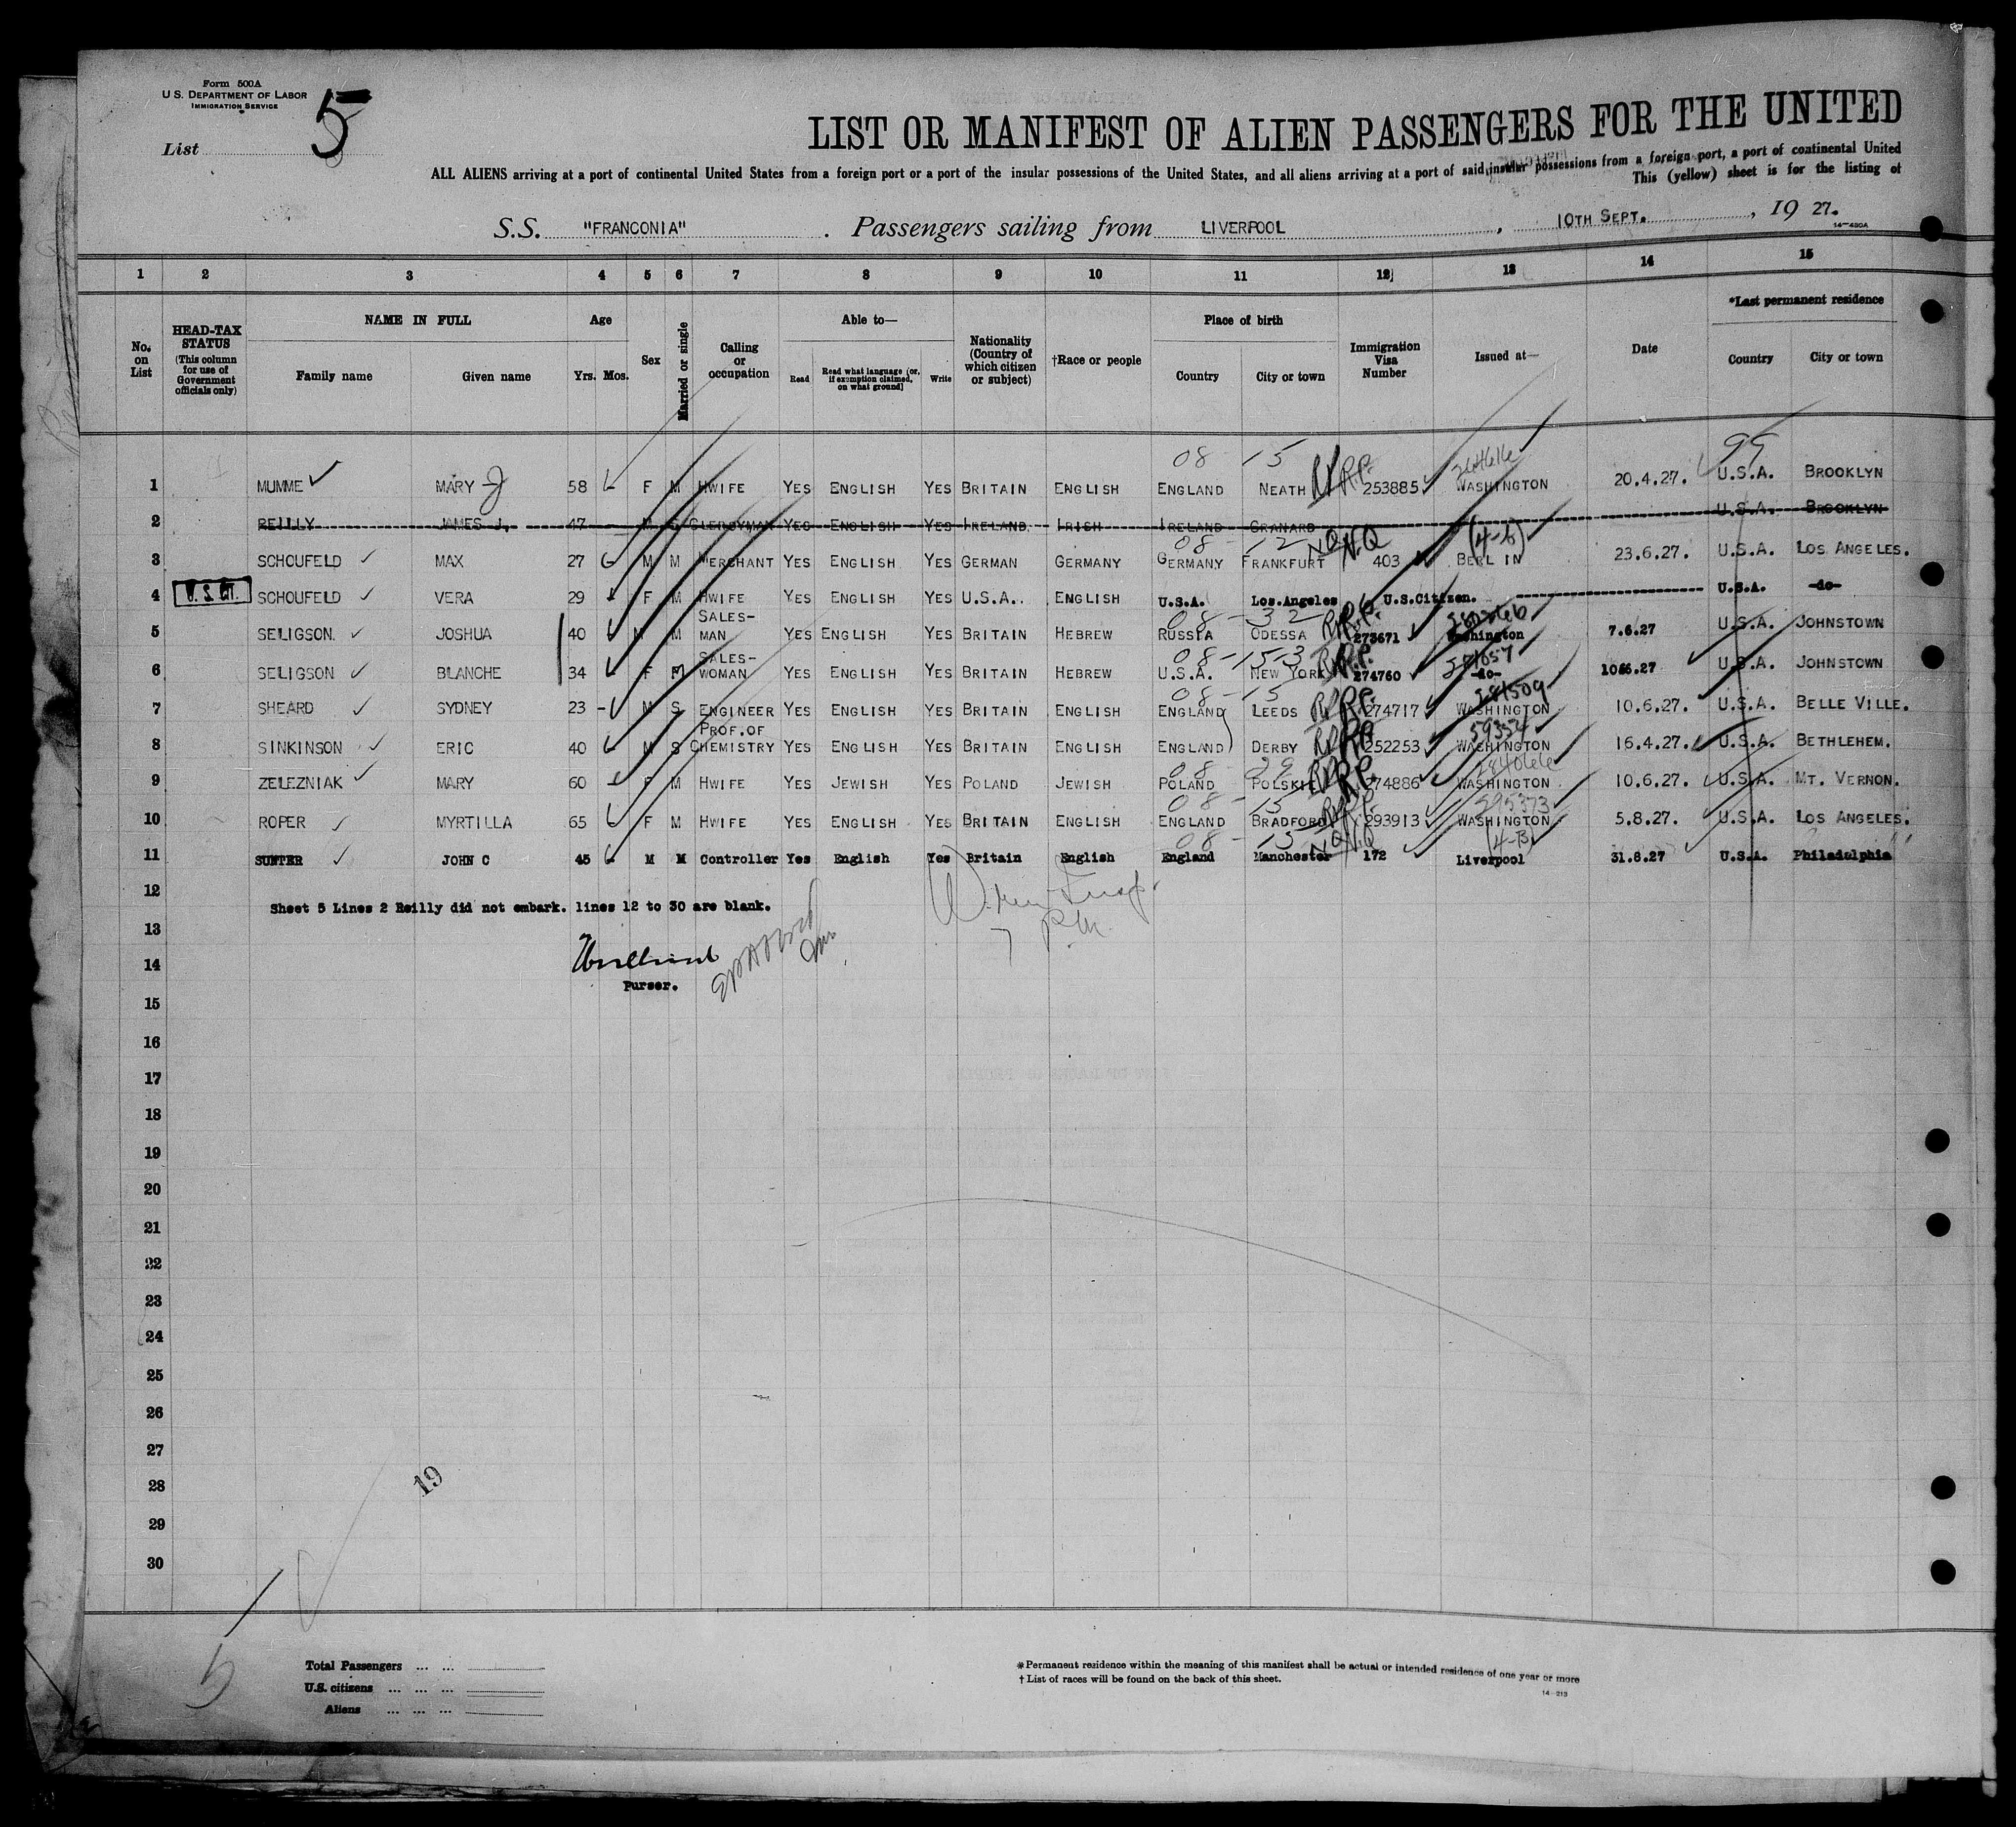 Form 500A
U.S. DEPARTMENT OF LABOR
IMMIGRATION SERVICE
List 5
LIST OR MANIFEST OF ALIEN PASSENGERS FOR THE UNITED
ALL ALIENS arriving at a port of continental United States from a foreign port or a port of the insular possessions of the United States, and all aliens arriving at a port of said insular possessions from a foreign port, a port of continental United
This (yellow) sheet is for the listing of
S.S. "FRANCONIA" . Passengers sailing from LIVERPOOL , 10TH SEPT. , 19 27.
14—480A
1 2 3 4 5 6 7 8 9 10 11 12 13 14 15
No. on List
HEAD-TAX STATUS (This column for use of Government officials only)
NAME IN FULL
Family name Given name
Age
Yrs. Mos.
Sex
Married or single
Calling or occupation
Able to—
Read Read what language [or, if exemption claimed, on what ground] Write
Nationality (Country of which citizen or subject)
†Race or people
Place of birth
Country City or town
Immigration Visa Number
Issued at—
Date
*Last permanent residence
Country City or town
99
08 - 15
1 MUMME MARY J 58 - F M HWIFE YES ENGLISH YES BRITAIN ENGLISH ENGLAND NEATH R.P. 253885 WASHINGTON 20.4.27. U.S.A. BROOKLYN
2 REILLY JAMES J. 47 - M S CLERGYMAN YES ENGLISH YES IRELAND. IRISH IRELAND GRANARD U.S.A. BROOKLYN
08 - 12 N.Q (4-b)
3 SCHOUFELD MAX 27 M M MERCHANT YES ENGLISH YES GERMAN GERMANY GERMANY FRANKFURT 403 BERLIN 23.6.27. U.S.A. LOS ANGELES.
4 U.S. CIT. SCHOUFELD VERA 29 F M HWIFE YES ENGLISH YES U.S.A. ENGLISH U.S.A. Los.Angeles U.S.Citizen. U.S.A. -do-
08 - 32
5 SELIGSON. JOSHUA 40 M M SALES-MAN YES ENGLISH YES BRITAIN HEBREW RUSSIA ODESSA R.P. 273671 Washington 7.6.27 U.S.A. JOHNSTOWN
08-15-3
6 SELIGSON BLANCHE 34 F M SALES-WOMAN YES ENGLISH YES BRITAIN HEBREW U.S.A. NEW YORK R.P. 274760 281057 -do- 1066.27 U.S.A. JOHNSTOWN
08 - 15 281509
7 SHEARD SYDNEY 23 - M S ENGINEER YES ENGLISH YES BRITAIN ENGLISH ENGLAND LEEDS R.P. 274717 WASHINGTON 10.6.27. U.S.A. BELLE VILLE.
8 SINKINSON ERIC 40 M S PROF.OF CHEMISTRY YES ENGLISH YES BRITAIN ENGLISH ENGLAND DERBY R.P. 252253 WASHINGTON 16.4.27. U.S.A. BETHLEHEM.
08 - 29
9 ZELEZNIAK MARY 60 F M HWIFE YES JEWISH YES POLAND JEWISH POLAND POLSKIE R.P. 274886 WASHINGTON 10.6.27. U.S.A. MT. VERNON.
08 - 15 295373
10 ROPER MYRTILLA 65 F M HWIFE YES ENGLISH YES BRITAIN ENGLISH ENGLAND BRADFORD R.P. 293913 WASHINGTON 5.8.27. U.S.A. LOS ANGELES.
08 - 15 N.Q (4-B)
11 SUNTER JOHN C 45 M M Controller Yes English Yes Britain English England Manchester 172 Liverpool 31.8.27 U.S.A. Philadelphia
12
Sheet 5 Lines 2 Reilly did not embark. lines 12 to 30 are blank.
13
14
Purser.
15
16
17
18
19
20
21
22
23
24
25
26
27
28 19
29
30
5
Total Passengers ... ...
U.S. citizens ... ... ...
Aliens ... ... ...
*Permanent residence within the meaning of this manifest shall be actual or intended residence of one year or more
†List of races will be found on the back of this sheet.
14—213